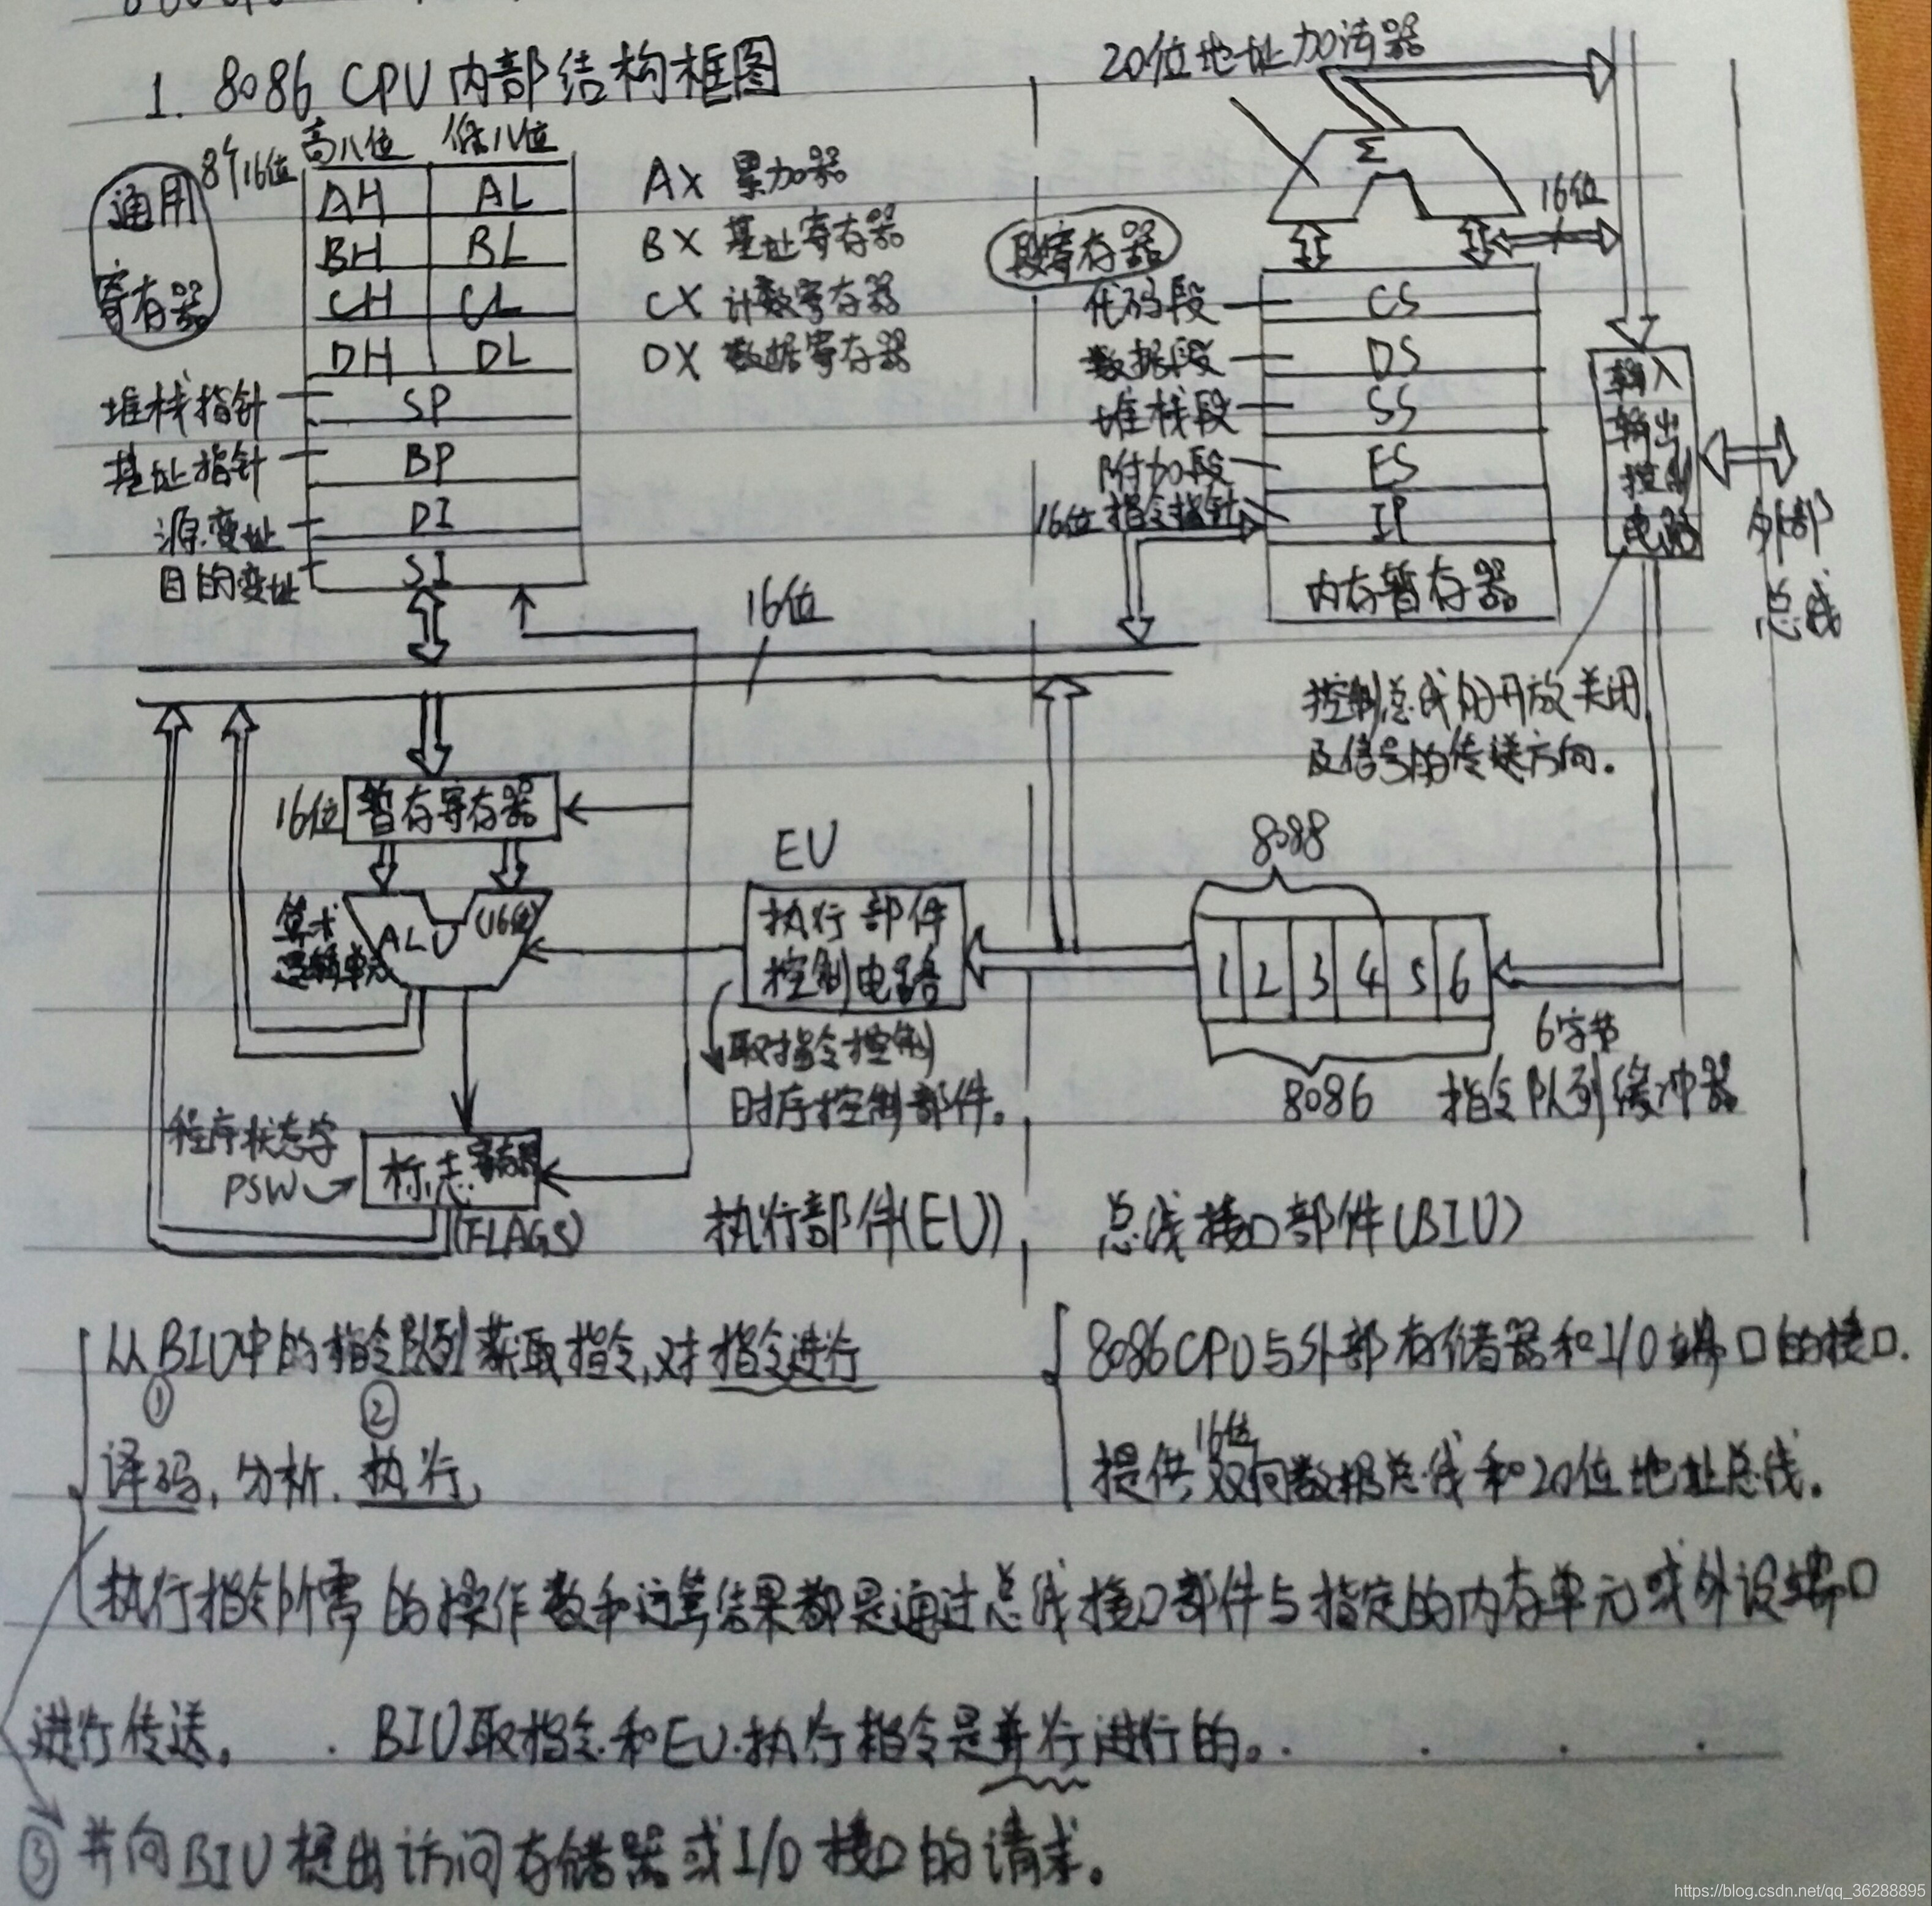 1. 8086 CPU 内部结构框图
20位地址加法器
8个16位 高八位 低八位
通用
寄存器
AH AL
BH BL
CH CL
DH DL
SP
BP
DI
SI
AX 累加器
BX 基址寄存器
CX 计数寄存器
DX 数据寄存器
堆栈指针
基址指针
源变址
目的变址
Σ
16位
段寄存器
代码段 CS
数据段 DS
堆栈段 SS
附加段 ES
16位指令指针 IP
内存暂存器
输入
输出
控制
电路
外部
总线
16位
控制总线的开放关闭
及信号的传送方向。
16位 暂存寄存器
算术
逻辑单元
ALU (16位)
EU
执行部件
控制电路
取指令控制
时序控制部件。
8088
1 2 3 4 5 6
8086
6字节
指令队列缓冲器
程序状态字
PSW
标志寄存器
(FLAGS)
执行部件(EU)
总线接口部件(BIU)
从BIU中的指令队列获取指令,对指令进行
① ②
译码,分析.执行,
8086CPU与外部存储器和I/O端口的接口.
16位
提供双向数据总线和20位地址总线。
执行指令所需的操作数和运算结果都是通过总线接口部件与指定的内存单元或外设端口
进行传送。 BIU取指令和EU执行指令是并行进行的。
③并向BIU提出访问存储器或I/O接口的请求。
https://blog.csdn.net/qq_36288895